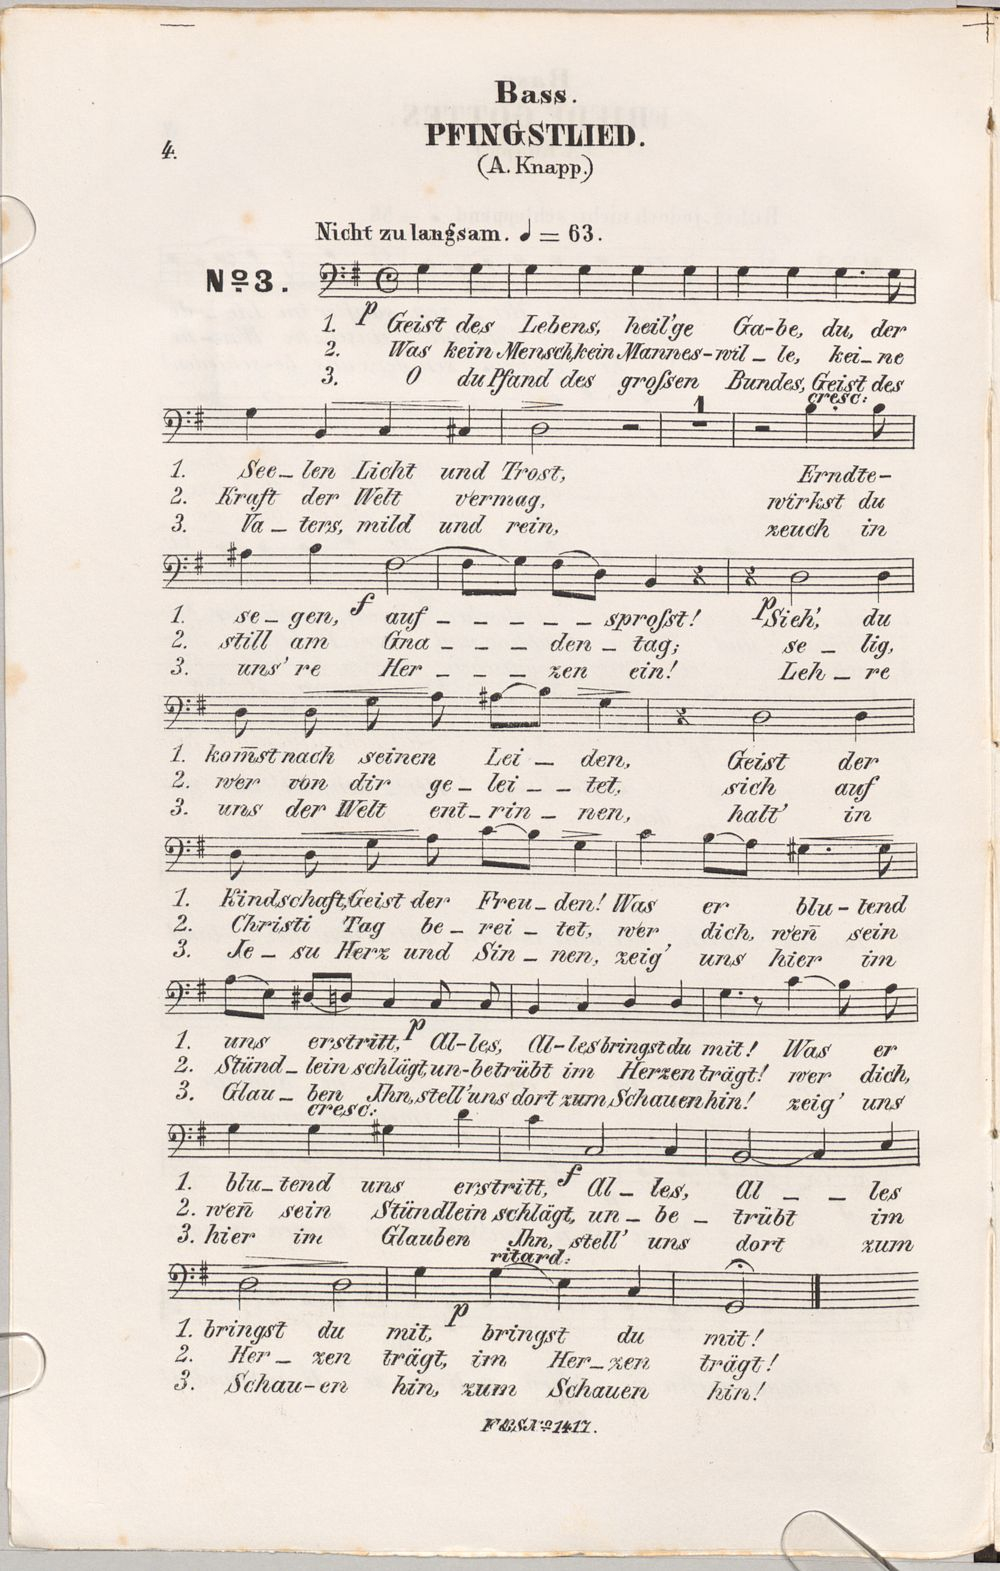 Bass.
PFINGSTLIED.
4.
(A. Knapp.)
Nicht zu langsam. ♩ = 63.
No 3.
p
1. Geist des Lebens, heil'ge Ga-be, du, der
2. Was kein Mensch, kein Mannes-wil – le, kei – ne
3. O du Pfand des groſsen Bundes, Geist des
1 cresc:
1. See – len Licht und Trost, Erndte –
2. Kraft der Welt vermag, wirkst du
3. Va – ters, mild und rein, zeuch in
f p
1. se – gen, auf – – – – – sproſst! Sieh', du
2. still am Gna – – – den – tag; se – lig,
3. uns' re Her – – – zen ein! Leh – re
1. kom̄st nach seinen Lei – den, Geist der
2. wer von dir ge – lei – – tet, sich auf
3. uns der Welt ent – rin – nen, halt' in
1. Kindschaft, Geist der Freu – den! Was er blu – tend
2. Christi Tag be – rei – tet, wer dich, wen̄ sein
3. Je – su Herz und Sin – nen, zeig' uns hier im
p
1. uns erstritt, Al-les, Al-les bringst du mit! Was er
2. Stünd – lein schlägt, un-betrübt im Herzen trägt! wer dich,
3. Glau – ben Ihn, stell' uns dort zum Schauen hin! zeig' uns
cresc:
f
1. blu – tend uns erstritt, Al – les, Al – – les
2. wen̄ sein Stündlein schlägt, un – be – trübt im
3. hier im Glauben Ihn, stell' uns dort zum
ritard:
p
1. bringst du mit, bringst du mit!
2. Her – zen trägt, im Her – zen trägt!
3. Schau – en hin, zum Schauen hin!
F & S No 1417.